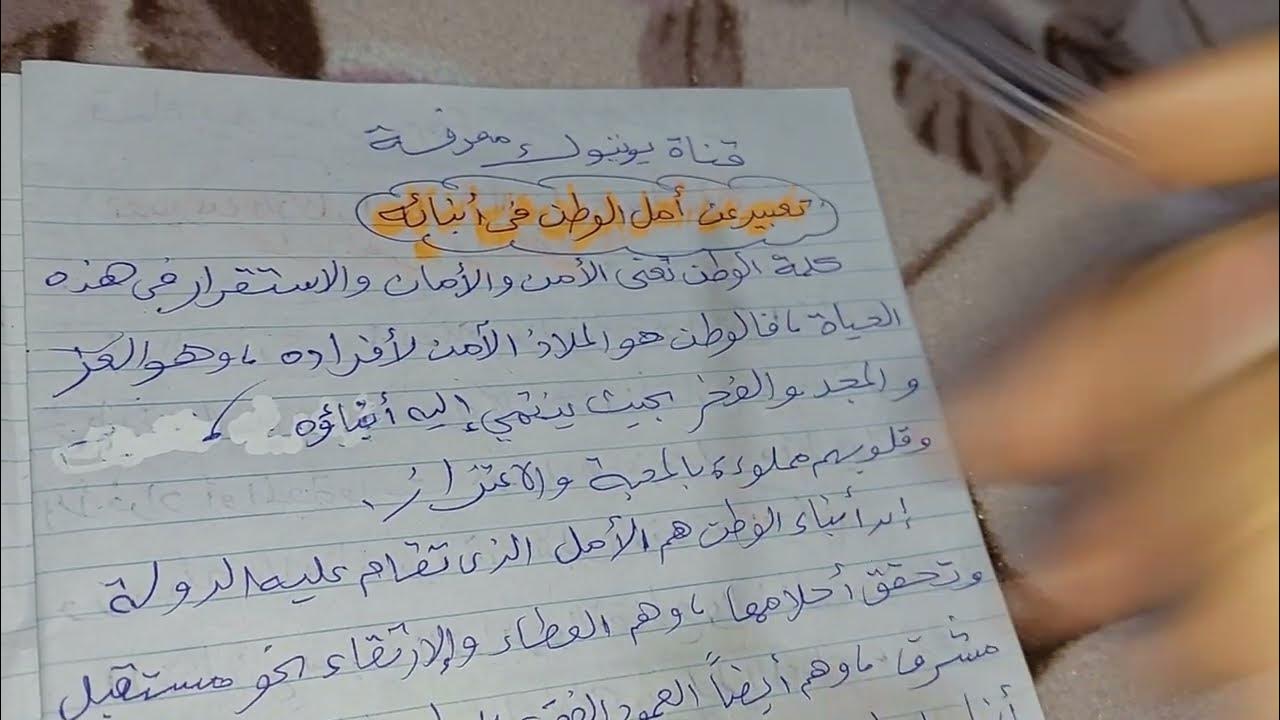 قناة يوتيوب معرفة
تعبير عن أمل الوطن في أبنائه
كلمة الوطن تعنى الأمن والأمان والاستقرار في هذه
الحياة، فالوطن هو الملاذ الآمن لأفراده، وهو العز
والمجد والفخر بحيث ينتمي إليه أبناؤه
وقلوبهم مملوءة بالمحبة والاعتزاز.
إن أبناء الوطن هم الأمل الذى تقام عليه الدولة
وتحقق أحلامها، وهم العطاء والإرتقاء نحو مستقبل
مشرق، وهم أيضاً العمود